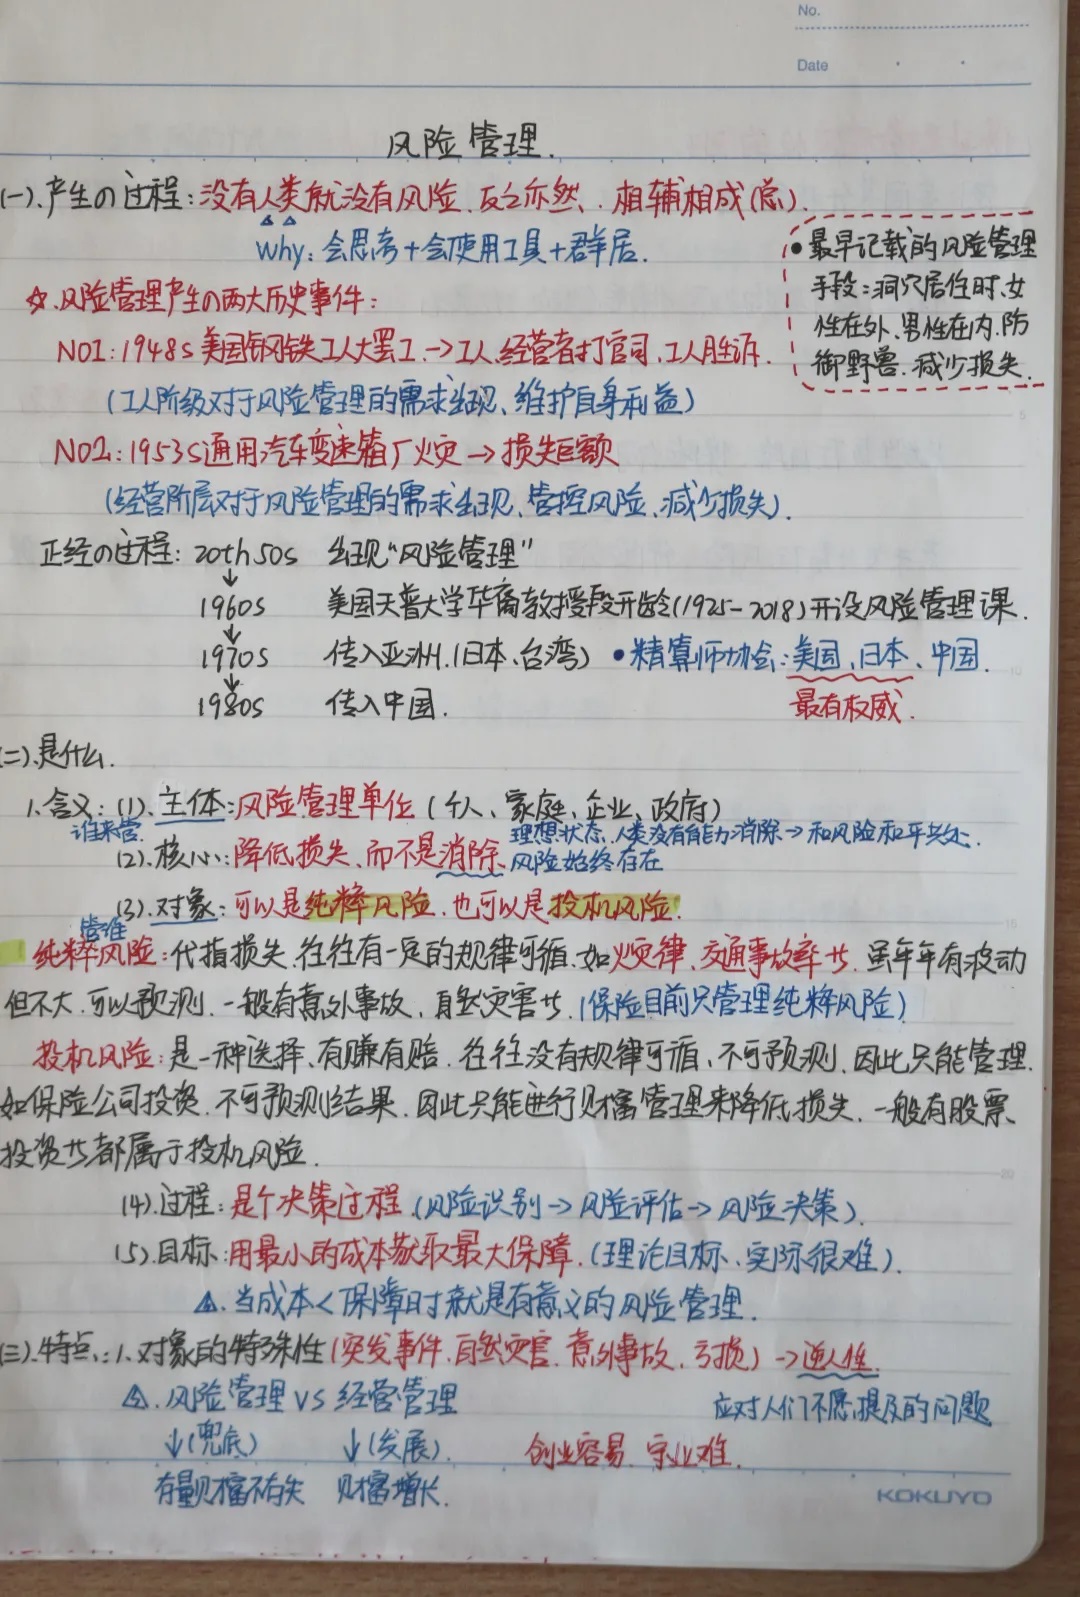 No.
Date
风险管理.
(一).产生の过程:没有人类就没有风险.反之亦然.相辅相成(总).
why:会思考+会使用工具+群居.
●最早记载的风险管理
手段:洞穴居住时,女
性在外、男性在内.防
御野兽.减少损失.
☆.风险管理产生の两大历史事件:
NO1:1948s美国钢铁工人大罢工.→工人.经营者打官司,工人胜诉.
(工人阶级对于风险管理的需求出现、维护自身利益)
NO2:1953s通用汽车变速箱厂火灾→损失巨额
(经营阶层对于风险管理的需求出现、管控风险、减少损失).
正经の过程:20th 50s 出现“风险管理”
↓
1960s 美国天普大学华裔教授段开龄(1925-2018)开设风险管理课.
↓
1970s 传入亚洲.(日本、台湾) ●精算师协会:美国、日本、中国.
↓
1980s 传入中国. 最有权威.
(二).是什么.
1.含义:(1).主体:风险管理单位(个人、家庭、企业、政府)
谁来管. 理想状态.人类没有能力消除→和风险和平共处.
(2).核心:降低损失、而不是消除、风险始终存在
(3).对象:可以是纯粹风险.也可以是投机风险.
管谁
纯粹风险:代指损失.往往有一定的规律可循.如火灾律、交通事故率廿.虽年年有波动
但不大.可以预测.一般有意外事故、自然灾害廿.(保险目前只管理纯粹风险)
投机风险:是一种选择、有赚有赔.往往没有规律可循、不可预测.因此只能管理.
如保险公司投资.不可预测结果.因此只能进行财富管理来降低损失.一般有股票、
投资廿都属于投机风险.
(4).过程:是个决策过程.(风险识别→风险评估→风险决策).
(5).目标:用最小的成本获取最大保障.(理论目标、实际很难).
△.当成本<保障时才就是有意义的风险管理.
(三).特点:1.对象的特殊性(突发事件.自然灾害.意外事故.亏损)→逆人性.
△.风险管理 VS 经营管理 应对人们不愿提及的问题
↓(兜底) ↓(发展). 创业容易.守业难.
存量财富不存失 财富增长.
KOKUYO